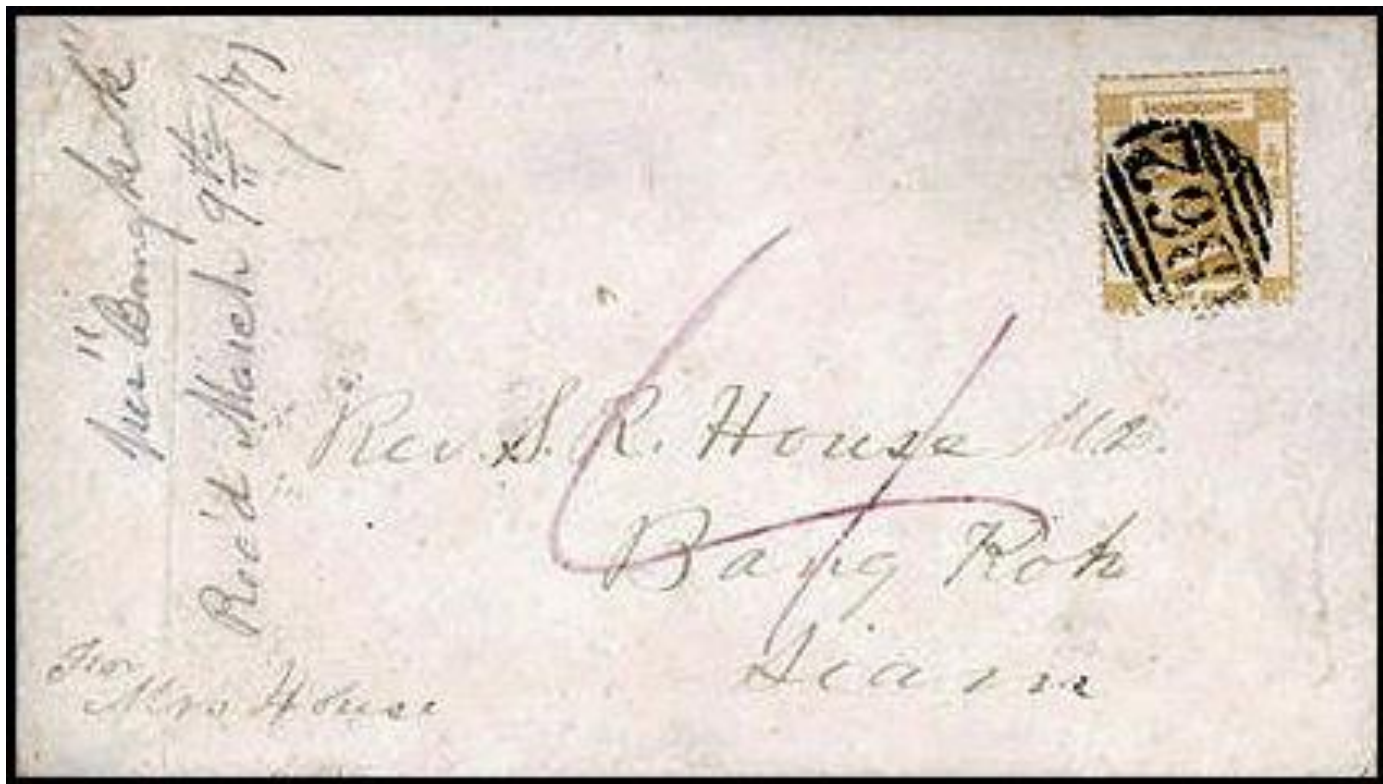 per "Bangkok"
Rec'd March 9th/71
HONGKONG
B62
4
Rev. S. R. House M.D.
Bang Kok
Siam
For
Mrs House